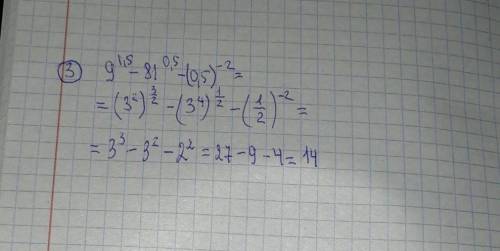 ③ 9^{1,5} - 81^{0,5} - (0,5)^{-2} =
= (3^2)^{\frac{3}{2}} - (3^4)^{\frac{1}{2}} - (\frac{1}{2})^{-2} =
= 3^3 - 3^2 - 2^2 = 27 - 9 - 4 = 14